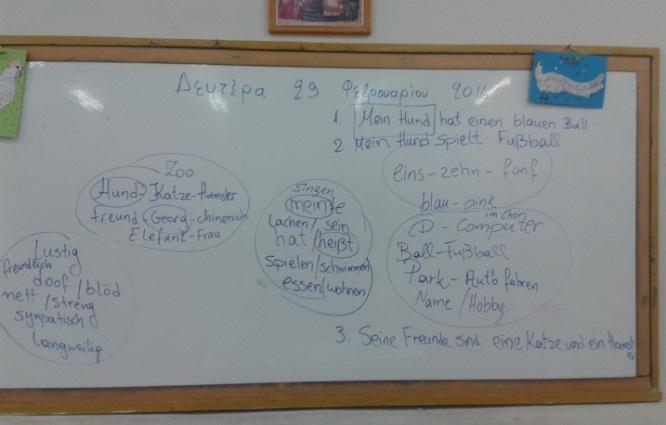 Δευτέρα 29 Φεβρουαρίου
1 Mein Hund hat einen blauen Ball
2 Mein Hund spielt Fußball
Zoo
Hund-Katze-Hamster
freund-Georg-chinesisch
Elefant-Frau
lustig
freundlich
doof/blöd
nett/streng
sympatisch
langweilig
singen
meinte
lachen/sein
hat/heißt
spielen/schwimmen
essen/wohnen
eins-zehn-fünf
blau-pink
CD-Computer
Ball-Fußball
Park-Auto fahren
Name/Hobby
3. Seine Freunde sind eine Katze und ein